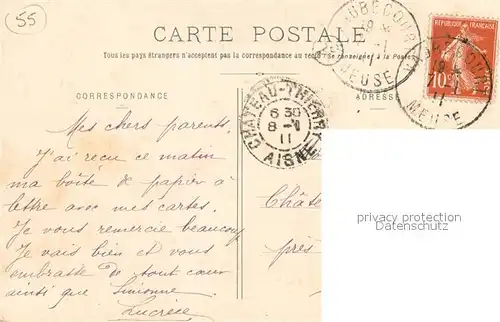 55
CARTE POSTALE
Tous les pays étrangers n'acceptent pas la correspondance au recto (Se renseigner à la Poste)
CORRESPONDANCE
ADRESSE
RÉPUBLIQUE FRANÇAISE
10c
MEUSE
MEUSE
CHÂTEAU-THIERRY
6 30
8 - 11
11
AISNE
Mes chers parents.
J'ai reçu ce matin
ma boîte de papier à
lettre avec mes cartes.
Je vous remercie beaucoup
Je vais bien et vous
embrasse de tout cœur
ainsi que Simonne.
Lucrèce
Château
près
privacy protection
Datenschutz